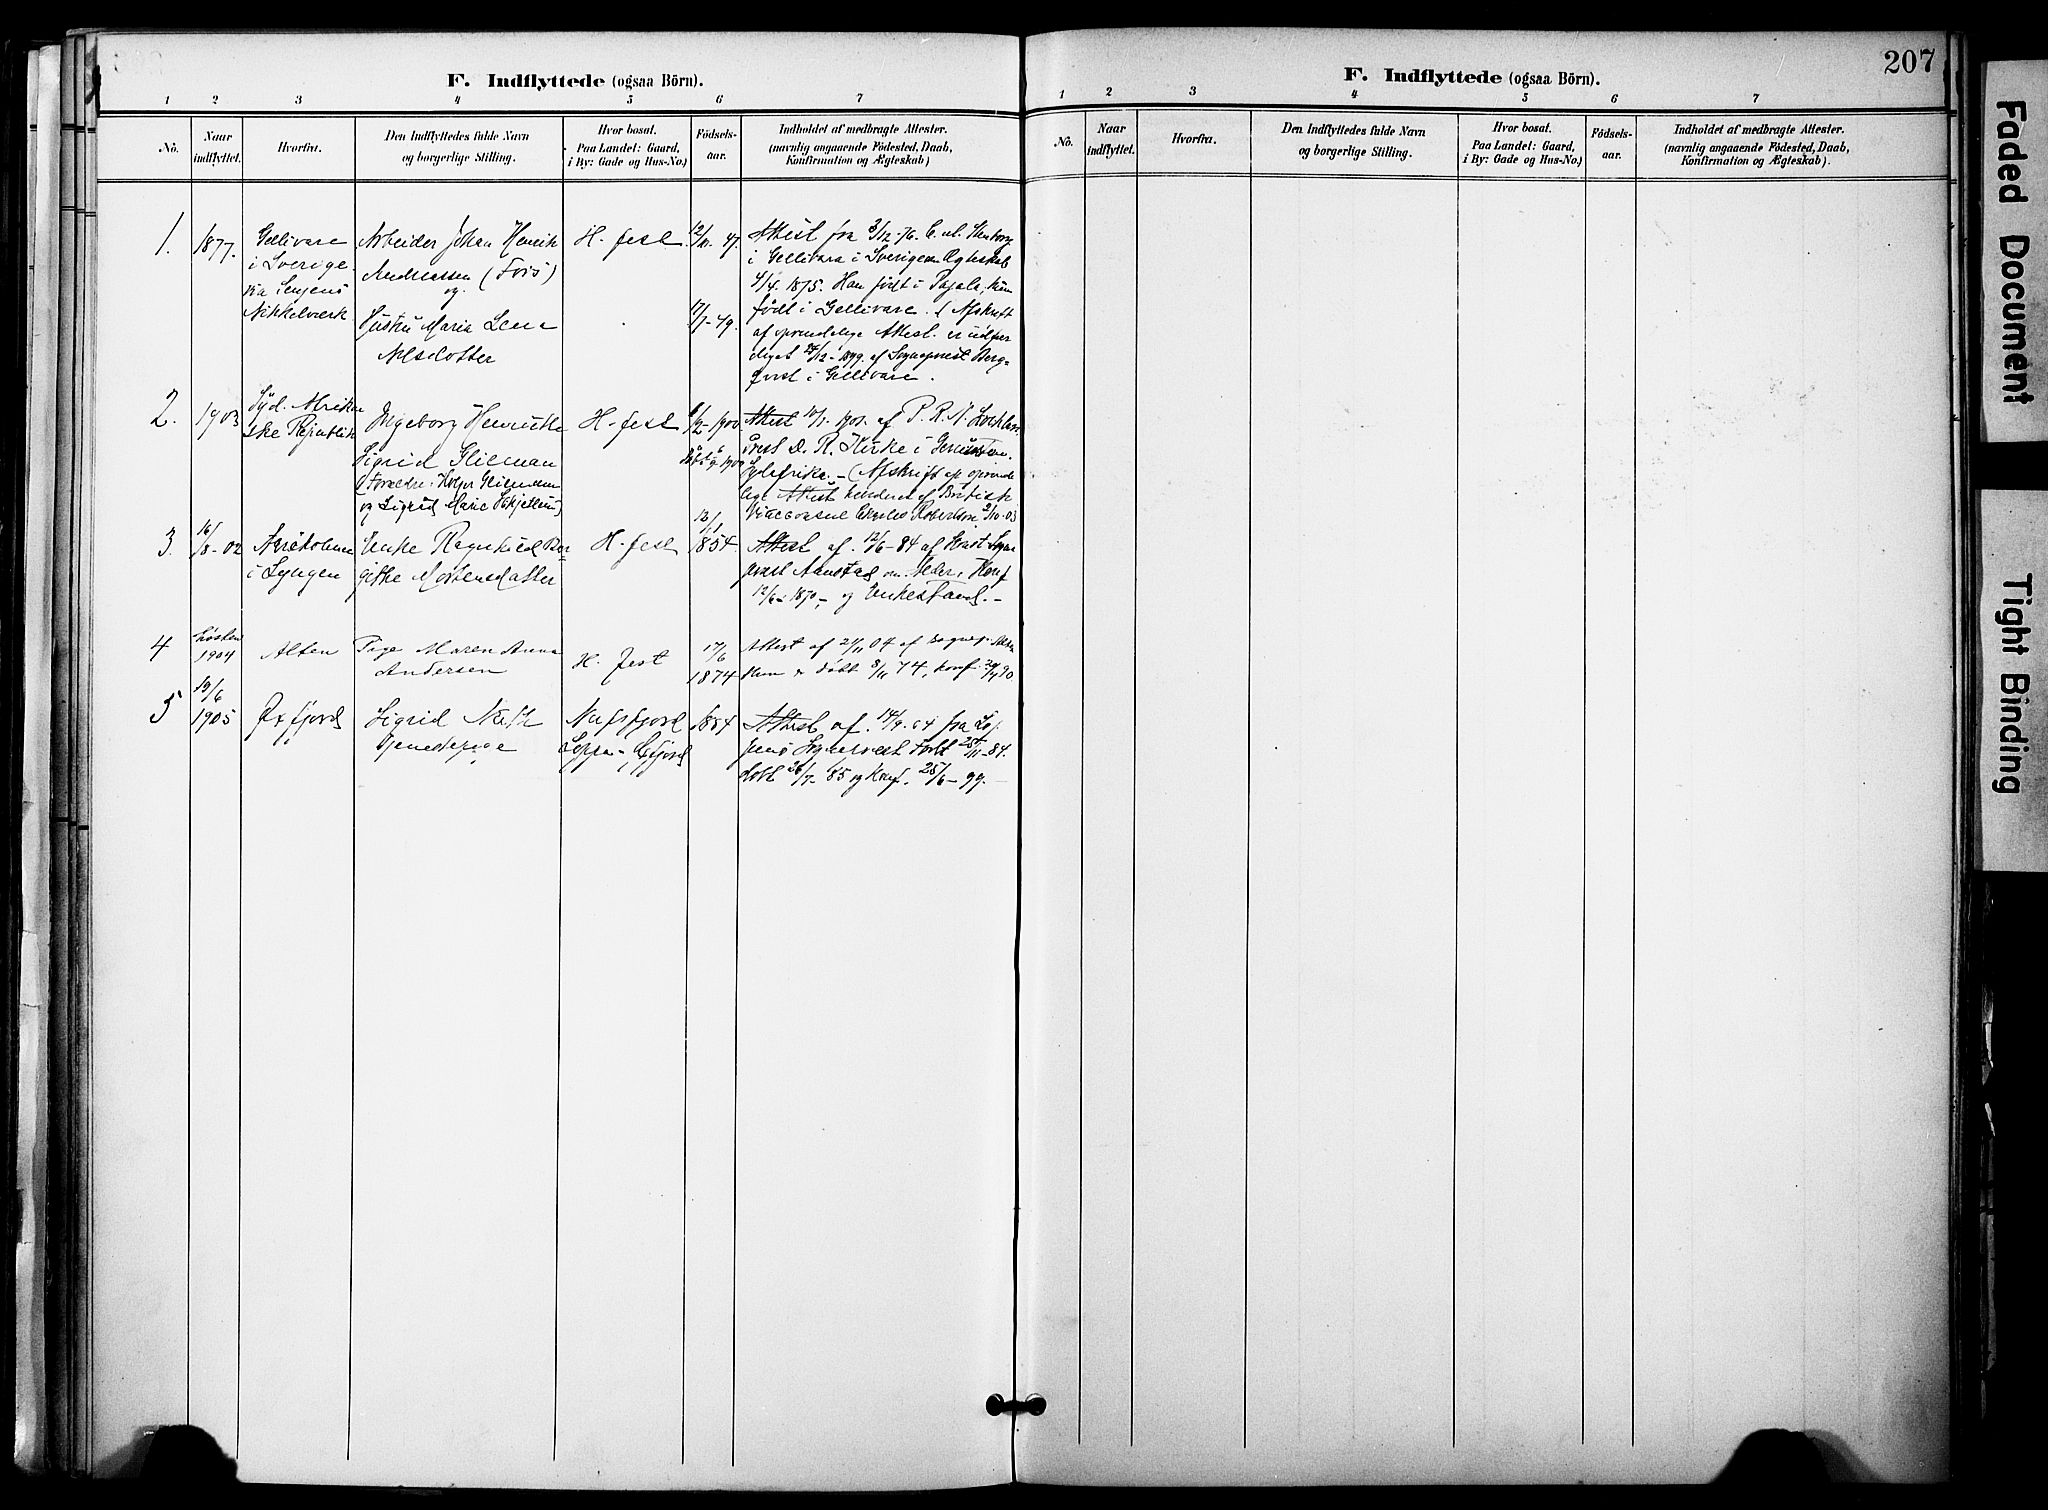 F. Indflyttede (ogsaa Börn).
1 2 3 4 5 6 7
No.
Naar
indflyttet.
Hvorfra.
Den Indflyttedes fulde Navn
og borgerlige Stilling.
Hvor bosat.
Paa Landet: Gaard,
i By: Gade og Hus-No.)
Födsels-
aar.
Indholdet af medbragte Attester.
(navnlig angaaende Födested, Daab,
Konfirmation og Ægteskab)
1.
1877.
Gellivare
i Sverige.
via Senjens
Nikkelværk
Arbeider Johan Henrik
Andreassen
og
Hustru Maria Lena
Nilsdotter
H-fest
12/11-47.
17/7-49.
Attest fra 3/12-76.
i Gellivara i Sverige om Ægteskab
4/4. 1875. Han født i Pajala, hun
født i Gellivare. (Afskrift
af oprindelige Attest er udfær
diget 27/12-1899. af Sogneprest Berg-
qvist i Gellivare.
2.
1903
Syd. Afrikan
ske Republik
Ingeborg Henriette
Sigrid Glieman
(Forældre: Holger Gliemann
og Sigrid Marie
H-fest
1/2-1900
Attest 10/1. 1901. af P. R. N.
Prest D. R. Kirke i
Sydafrika. - (Afskrift af oprinde
lige Attest vidimeret af Britisk
Viceconsul Charles Robertson 2/10-03
3.
16/8-02
i Lyngen
Enke Ragnhild Bir
githe Mortensdatter
H-fest
12/1
1854
Attest af 12/6-84 af Konst. Sogne
prest Aanstad om Alder, Konf
12/6-1870,- og Enkestand.-
4
Høsten
1904
Alten
Pige Maren Anna
Andersen
H. fest
17/6
1874
Attest af 24/11 04 af Sognep.
Hun er døbt 8/11 74, konf. 90.
5
19/6
1905
Øxfjord
Sigrid
Tjenestepige
Nufsfjord
Loppa-
1884
Attest af 14/9.04 fra
Sognepræst Født 25/11-84.
døbt 26/7-85 og Konf. 25/6-99.-
F. Indflyttede (ogsaa Börn).
207
1 2 3 4 5 6 7
No.
Naar
indflyttet.
Hvorfra.
Den Indflyttedes fulde Navn
og borgerlige Stilling.
Hvor bosat.
Paa Landet: Gaard,
i By: Gade og Hus-No.)
Födsels-
aar.
Indholdet af medbragte Attester.
(navnlig angaaende Födested, Daab,
Konfirmation og Ægteskab).
Faded Document
Tight Binding